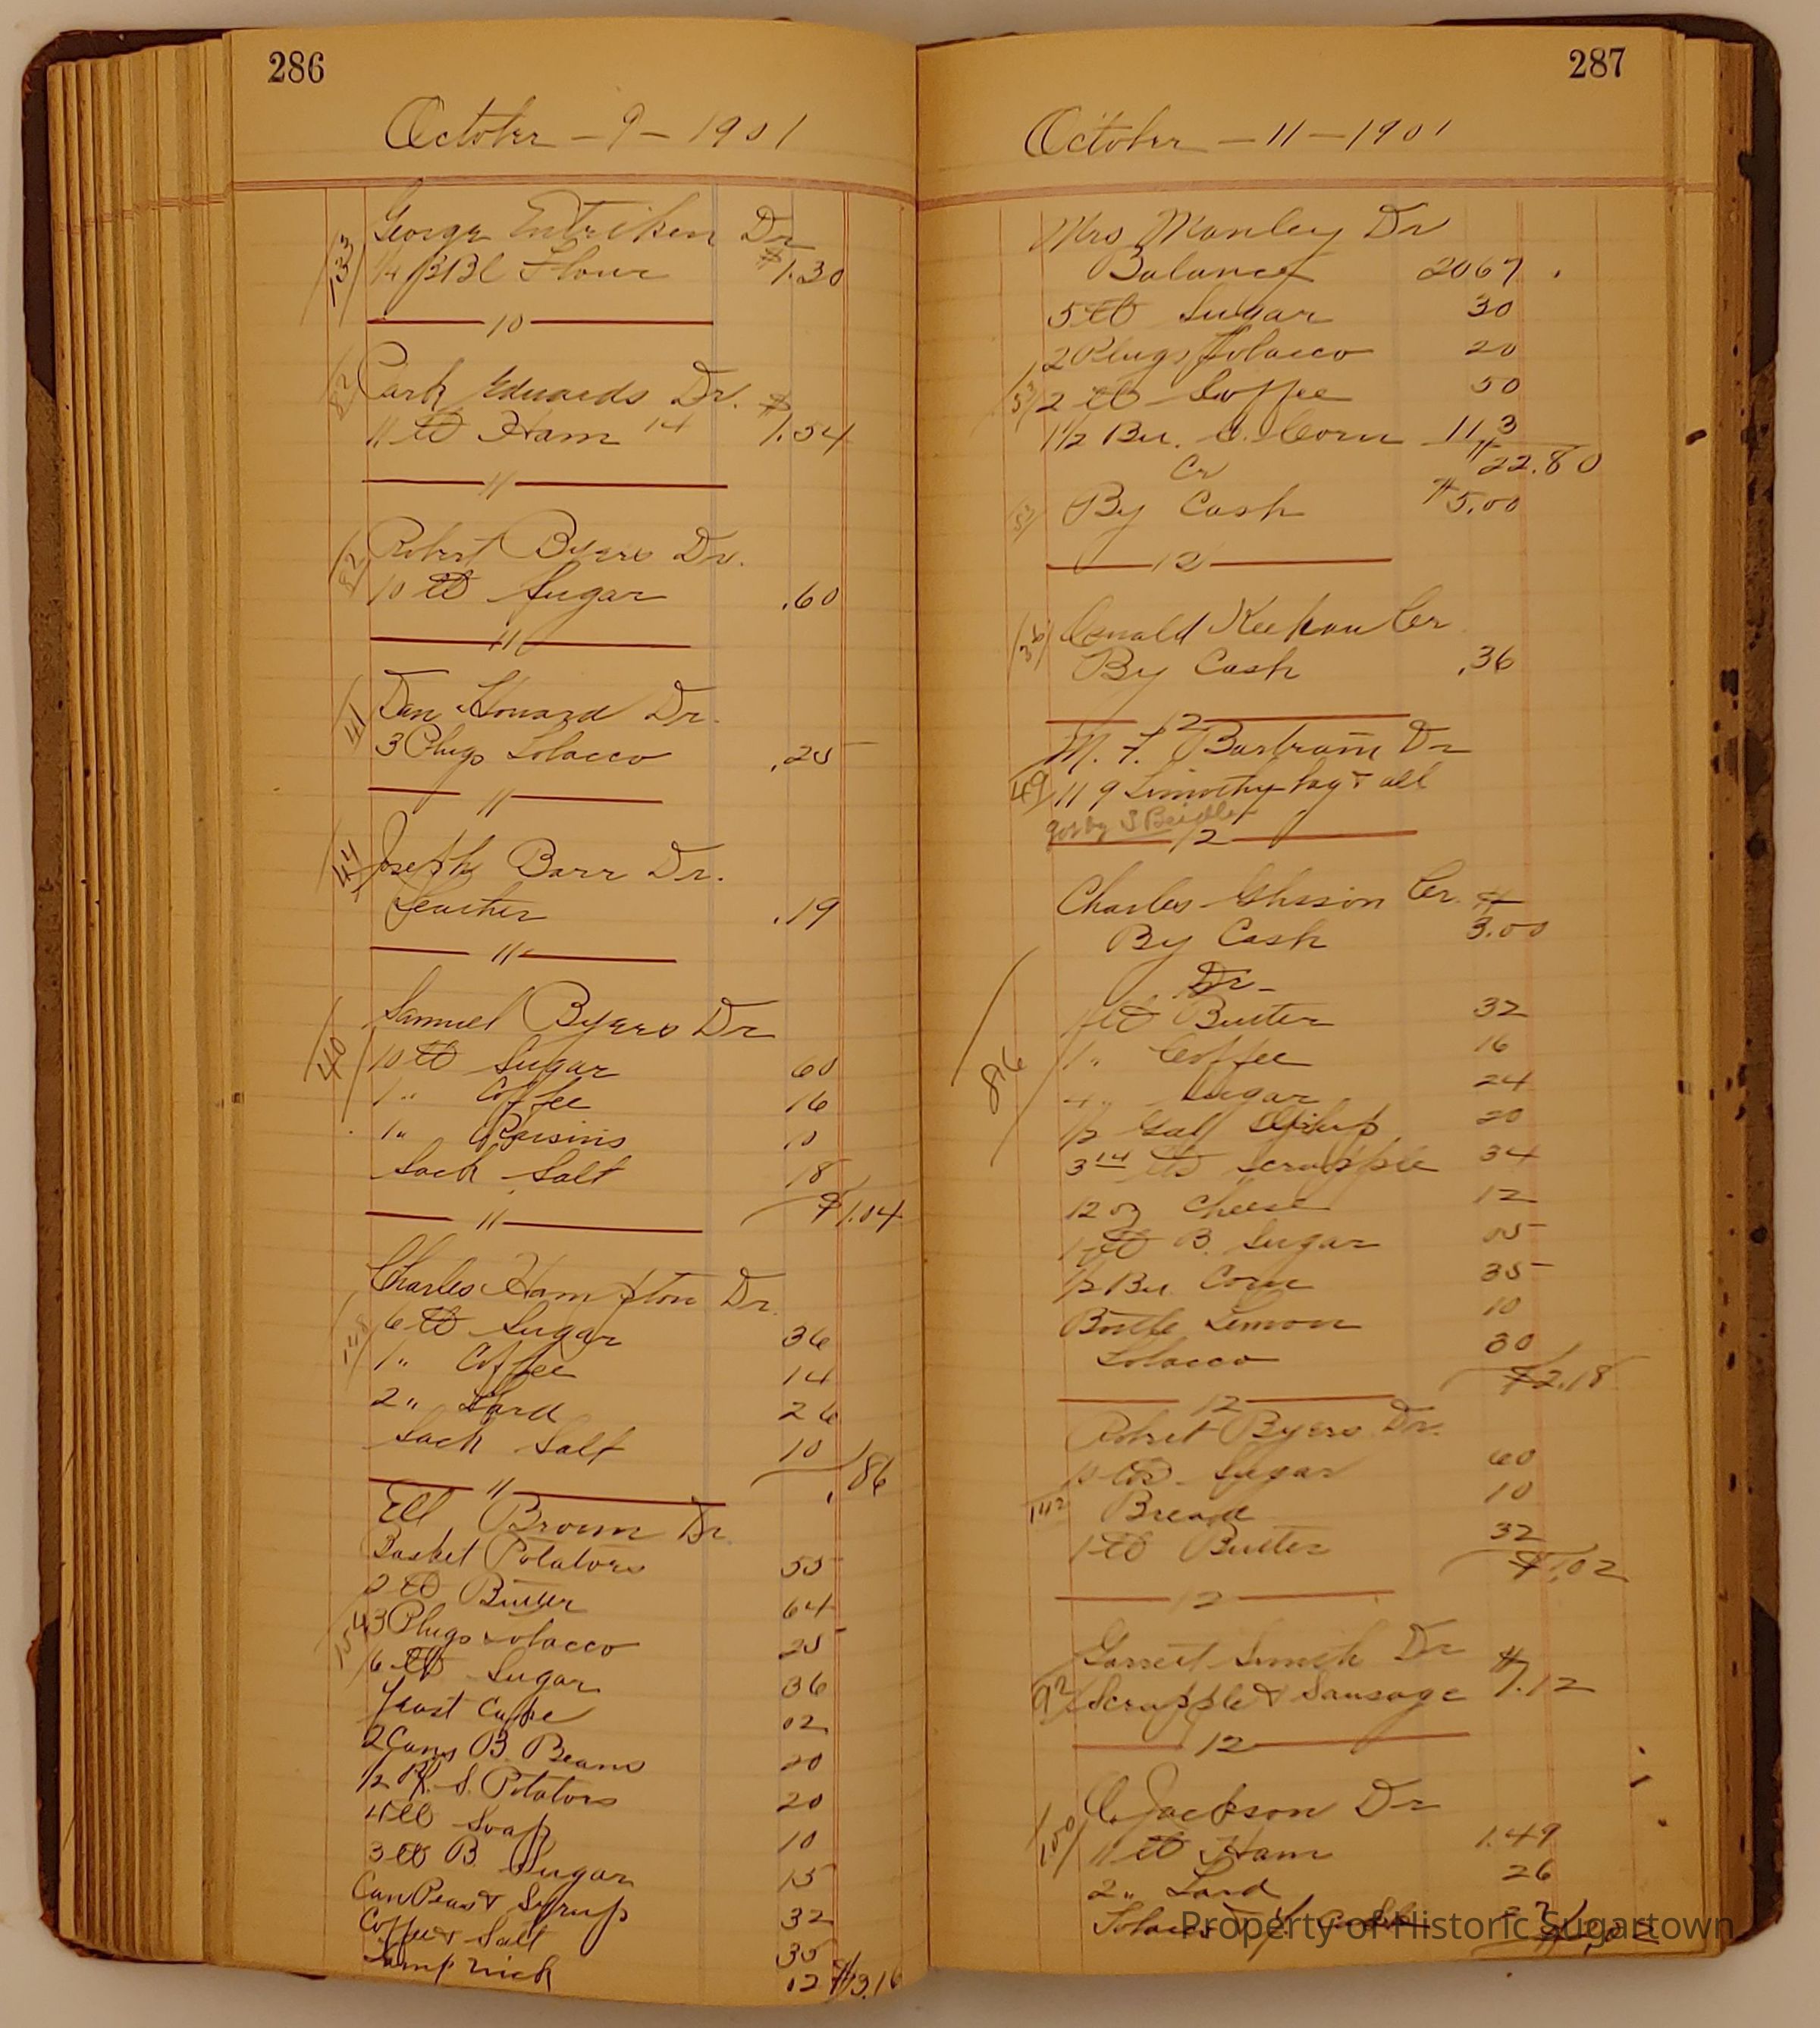 286
October - 9 - 1901
George Entriken Dr
133 1/4 BBl Flour $1.30
10
82 Park Edwards Dr.
11 lb Ham 14 $1.54
11
82 Robert Byers Dr.
10 lb Sugar .60
11
41 Dan Howard Dr.
3 Plugs Tobacco .25
11
44 Joseph Barr Dr.
Leather .19
11
Samuel Byers Dr
40 10 lb Sugar 60
1 " Coffee 16
1 " Raisins 10
Sack Salt 18
$1.04
11
Charles Hampton Dr.
148 6 lb Sugar 36
1 " Coffee 14
2 " Lard 26
Sack Salt 10
.86
11
Ell Brown Dr.
Basket Potatoes 55
2 lb Butter 64
154 3 Plugs Tobacco 25
6 lb Sugar 36
Yeast Cake 02
2 Cans B. Beans 20
1/2 Pk. S. Potatoes 20
4 lb Soap 10
3 lb B. Sugar 15
Can Peas & Syrup 32
Coffee & Salt 35
Lamp wick 12 $3.16
287
October - 11 - 1901
Mrs Manley Dr
Balance 2067.
5 lb Sugar 30
2 Plugs Tobacco 20
53 2 lb Coffee 50
1 1/2 Bu. S. Corn 113
$22.80
Cr
53 By Cash $5.00
12
36 Keehan Cr
By Cash .36
12
M. F. Bartram Dr
49 119 Timothy hay & all
got by S Beidler
12
Charles Ghrson Cr.
By Cash $3.00
Dr -
86 1 lb Butter 32
1 " Coffee 16
4 " Sugar 24
1/2 Gal Syrup 20
3 14 lb Scrapple 34
12 oz Cheese 12
1 lb B. Sugar 05
1/2 Bu. Corn 35
Bottle Lemon 10
Tobacco 30
$2.18
12
Robert Byers Dr.
10 lb Sugar 60
142 Bread 10
1 lb Butter 32
$1.02
12
Garrett Smith Dr
92 Scrapple & Sausage $1.12
12
C. Jackson Dr
100 11 lb Ham 1.49
2 " Lard 26
Property of Historic Sugartown